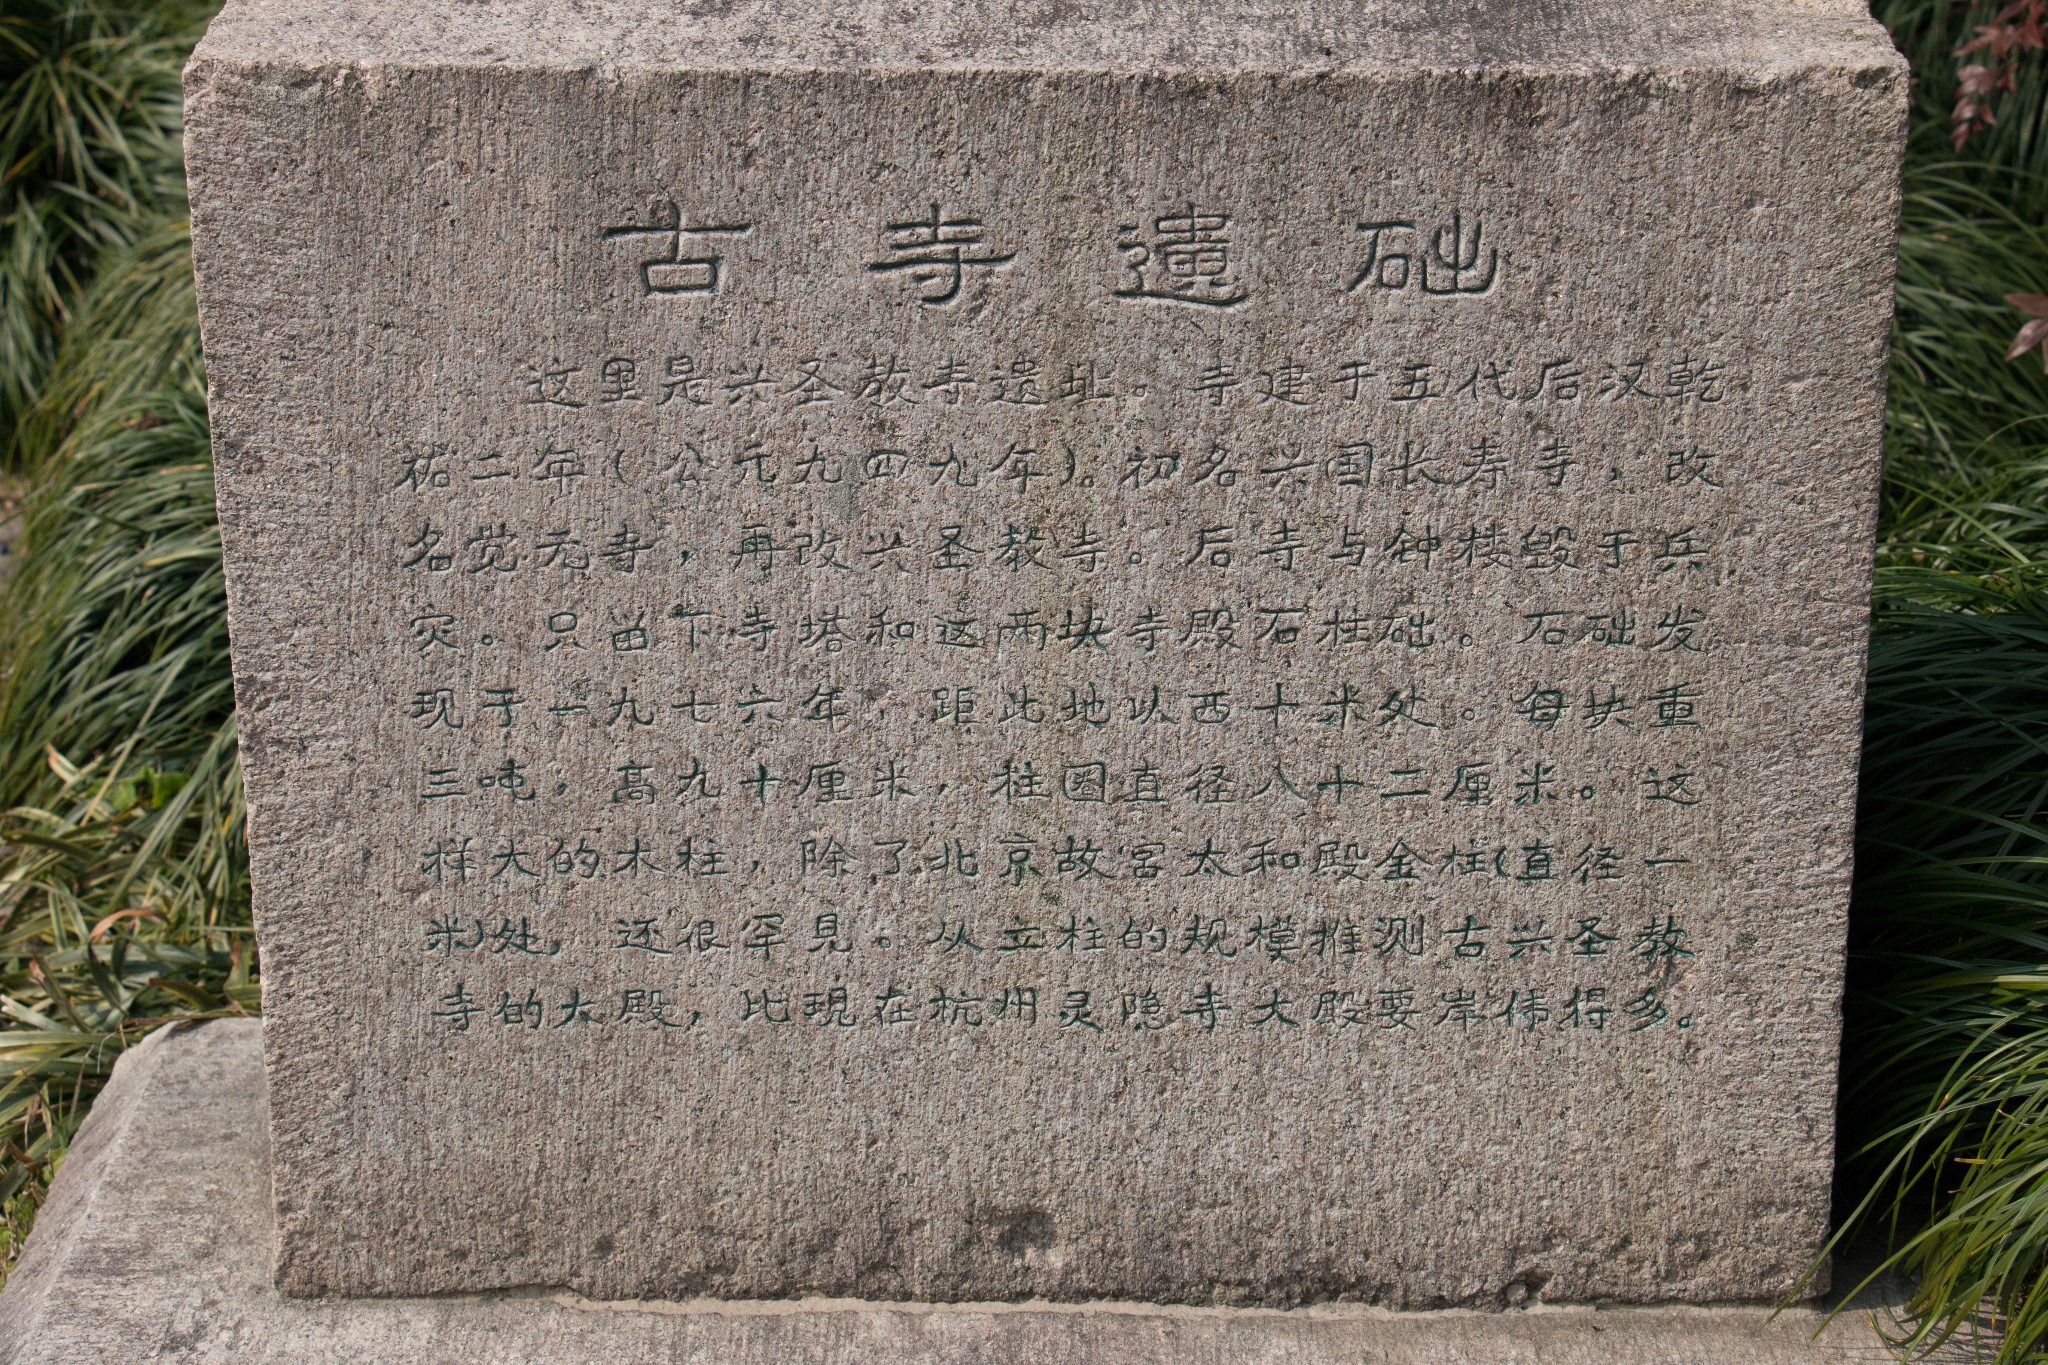 古寺遗础
这里是兴圣教寺遗址。寺建于五代后汉乾
祐二年(公元九四九年)。初名兴国长寿寺,改
名觉元寺,再改兴圣教寺。后寺与钟楼毁于兵
灾。只留下寺塔和这两块寺殿石柱础。石础发
现于一九七六年,距此地以西十米处。每块重
三吨,高九十厘米,柱圈直径八十二厘米。这
样大的木柱,除了北京故宫太和殿金柱(直径一
米)处,还很罕见。从立柱的规模推测古兴圣教
寺的大殿,比现在杭州灵隐寺大殿要岸伟得多。